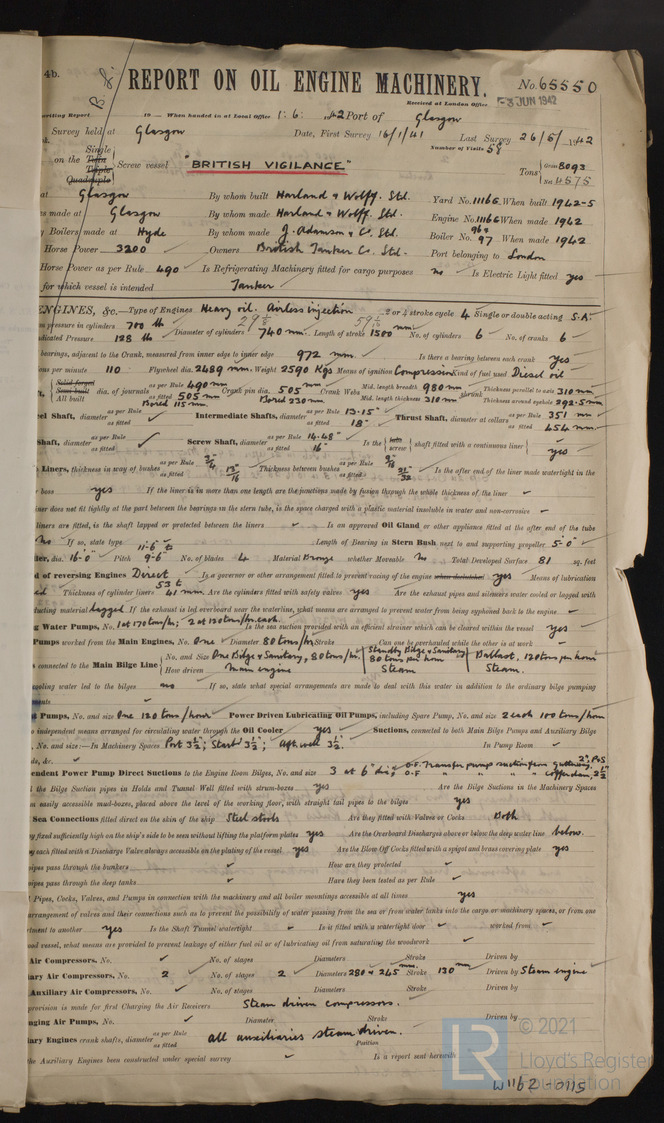 4b.
B. S.
REPORT ON OIL ENGINE MACHINERY.
No. 65550
Received at London Office
-3 JUN 1942
writing Report 19 When handed in at Local Office 1. 6. 42 Port of Glasgow
Survey held at Glasgow Date, First Survey 16/1/41 Last Survey 26/5/1942
Number of Visits 58
on the Single Twin Triple Quadruple Screw vessel "BRITISH VIGILANCE" Tons Gross 8093 Net 4575
at Glasgow By whom built Harland & Wolff. Ltd. Yard No. 1116G When built 1942-5
s made at Glasgow By whom made Harland & Wolff. Ltd. Engine No. 1116G When made 1942
y Boilers made at Hyde By whom made J. Adamson & C. Ltd. Boiler No. 97 When made 1942
Horse Power 3200 Owners British Tanker Co. Ltd. Port belonging to London
Horse Power as per Rule 490 Is Refrigerating Machinery fitted for cargo purposes no Is Electric Light fitted yes
for which vessel is intended Tanker
ENGINES, &c.—Type of Engines Heavy oil. Airless injection 2 or 4 stroke cycle 4 Single or double acting S.A.
pressure in cylinders 700 lb Diameter of cylinders 740 mm. Length of stroke 1500 mm No. of cylinders 6 No. of cranks 6
dicated Pressure 128 lb
bearings, adjacent to the Crank, measured from inner edge to inner edge 972 mm. Is there a bearing between each crank yes
ons per minute 110 Flywheel dia. 2489 mm. Weight 2590 Kgs Means of ignition Compression Kind of fuel used Diesel oil
Solid forged Semi built All built dia. of journals as per Rule 490 mm as fitted 505 mm Crank pin dia. 505 mm Crank Webs Mid. length breadth 980 mm Thickness parallel to axis 310 mm
Bored 115 mm Bored 230 mm Mid. length thickness 310 mm shrunk Thickness around eyehole 292.5 mm
el Shaft, diameter as per Rule as fitted Intermediate Shafts, diameter as per Rule 13.15" as fitted 18" Thrust Shaft, diameter at collars as per Rule 351 mm as fitted 454 mm.
Shaft, diameter as per Rule as fitted Screw Shaft, diameter as per Rule 14.48" as fitted 16" Is the tube screw shaft fitted with a continuous liner yes
Liners, thickness in way of bushes as per Rule 3/4 as fitted 13/16 Thickness between bushes as per Rule 9/16 as fitted 21/32 Is the after end of the liner made watertight in the
boss yes If the liner is in more than one length are the junctions made by fusion through the whole thickness of the liner
iner does not fit tightly at the part between the bearings in the stern tube, is the space charged with a plastic material insoluble in water and non-corrosive
liners are fitted, is the shaft lapped or protected between the liners Is an approved Oil Gland or other appliance fitted at the after end of the tube
no If so, state type Length of Bearing in Stern Bush next to and supporting propeller 5'-0"
er, dia. 16'-0" Pitch 9'-6" No. of blades 4 Material Bronze whether Moveable no Total Developed Surface 81 sq. feet
d of reversing Engines Direct Is a governor or other arrangement fitted to prevent racing of the engine when declutched yes Means of lubrication
ed Thickness of cylinder liners 41 mm. Are the cylinders fitted with safety valves yes Are the exhaust pipes and silencers water cooled or lagged with
ducting material lagged If the exhaust is led overboard near the waterline, what means are arranged to prevent water from being syphoned back to the engine
g Water Pumps, No. 1 at 170 tons/hr; 2 at 120 tons/hr. each. Is the sea suction provided with an efficient strainer which can be cleared within the vessel yes
Pumps worked from the Main Engines, No. One Diameter 80 tons/hr Stroke Can one be overhauled while the other is at work
connected to the Main Bilge Line No. and Size One Bilge & Sanitary, 80 tons/hr. Standby Bilge & Sanitary 80 tons per hour Ballast, 120 tons per hour
How driven Main engine Steam Steam.
ooling water led to the bilges no If so, state what special arrangements are made to deal with this water in addition to the ordinary bilge pumping
ents
t Pumps, No. and size One 120 tons/hour Power Driven Lubricating Oil Pumps, including Spare Pump, No. and size 2 each 100 tons/hour
o independent means arranged for circulating water through the Oil Cooler yes Suctions, connected to both Main Bilge Pumps and Auxiliary Bilge
, No. and size:—In Machinery Spaces Port 3½"; Starb'd 3½"; Aft. well 3½". In Pump Room
ds, &c.
endent Power Pump Direct Suctions to the Engine Room Bilges, No. and size 3 at 6" dia; O.F. Transfer pumps suction from gutterway, 2", P & S
O.F. " " " " Cofferdam, 2½"
l the Bilge Suction pipes in Holds and Tunnel Well fitted with strum-boxes yes Are the Bilge Suctions in the Machinery Spaces
m easily accessible mud-boxes, placed above the level of the working floor, with straight tail pipes to the bilges yes
Sea Connections fitted direct on the skin of the ship Steel stools Are they fitted with Valves or Cocks Both
y fixed sufficiently high on the ship's side to be seen without lifting the platform plates yes Are the Overboard Discharges above or below the deep water line below.
y each fitted with a Discharge Valve always accessible on the plating of the vessel yes Are the Blow Off Cocks fitted with a spigot and brass covering plate yes
ipes pass through the bunkers How are they protected
ipes pass through the deep tanks Have they been tested as per Rule
l Pipes, Cocks, Valves, and Pumps in connection with the machinery and all boiler mountings accessible at all times yes
arrangement of valves and their connections such as to prevent the possibility of water passing from the sea or from water tanks into the cargo or machinery spaces, or from one
rtment to another yes Is the Shaft Tunnel watertight Is it fitted with a watertight door worked from
ood vessel, what means are provided to prevent leakage of either fuel oil or of lubricating oil from saturating the woodwork
Air Compressors, No. No. of stages Diameters Stroke Driven by
iary Air Compressors, No. 2 No. of stages 2 Diameters 280 & 245 mm. Stroke 130 mm Driven by Steam engine
Auxiliary Air Compressors, No. No. of stages Diameters Stroke Driven by
provision is made for first Charging the Air Receivers Steam driven compressors.
nging Air Pumps, No. Diameter Stroke Driven by
iary Engines crank shafts, diameter as per Rule as fitted all auxiliaries steam driven. Position
he Auxiliary Engines been constructed under special survey Is a report sent herewith
LR © 2021
Lloyd's Register
Foundation
W1162-0115